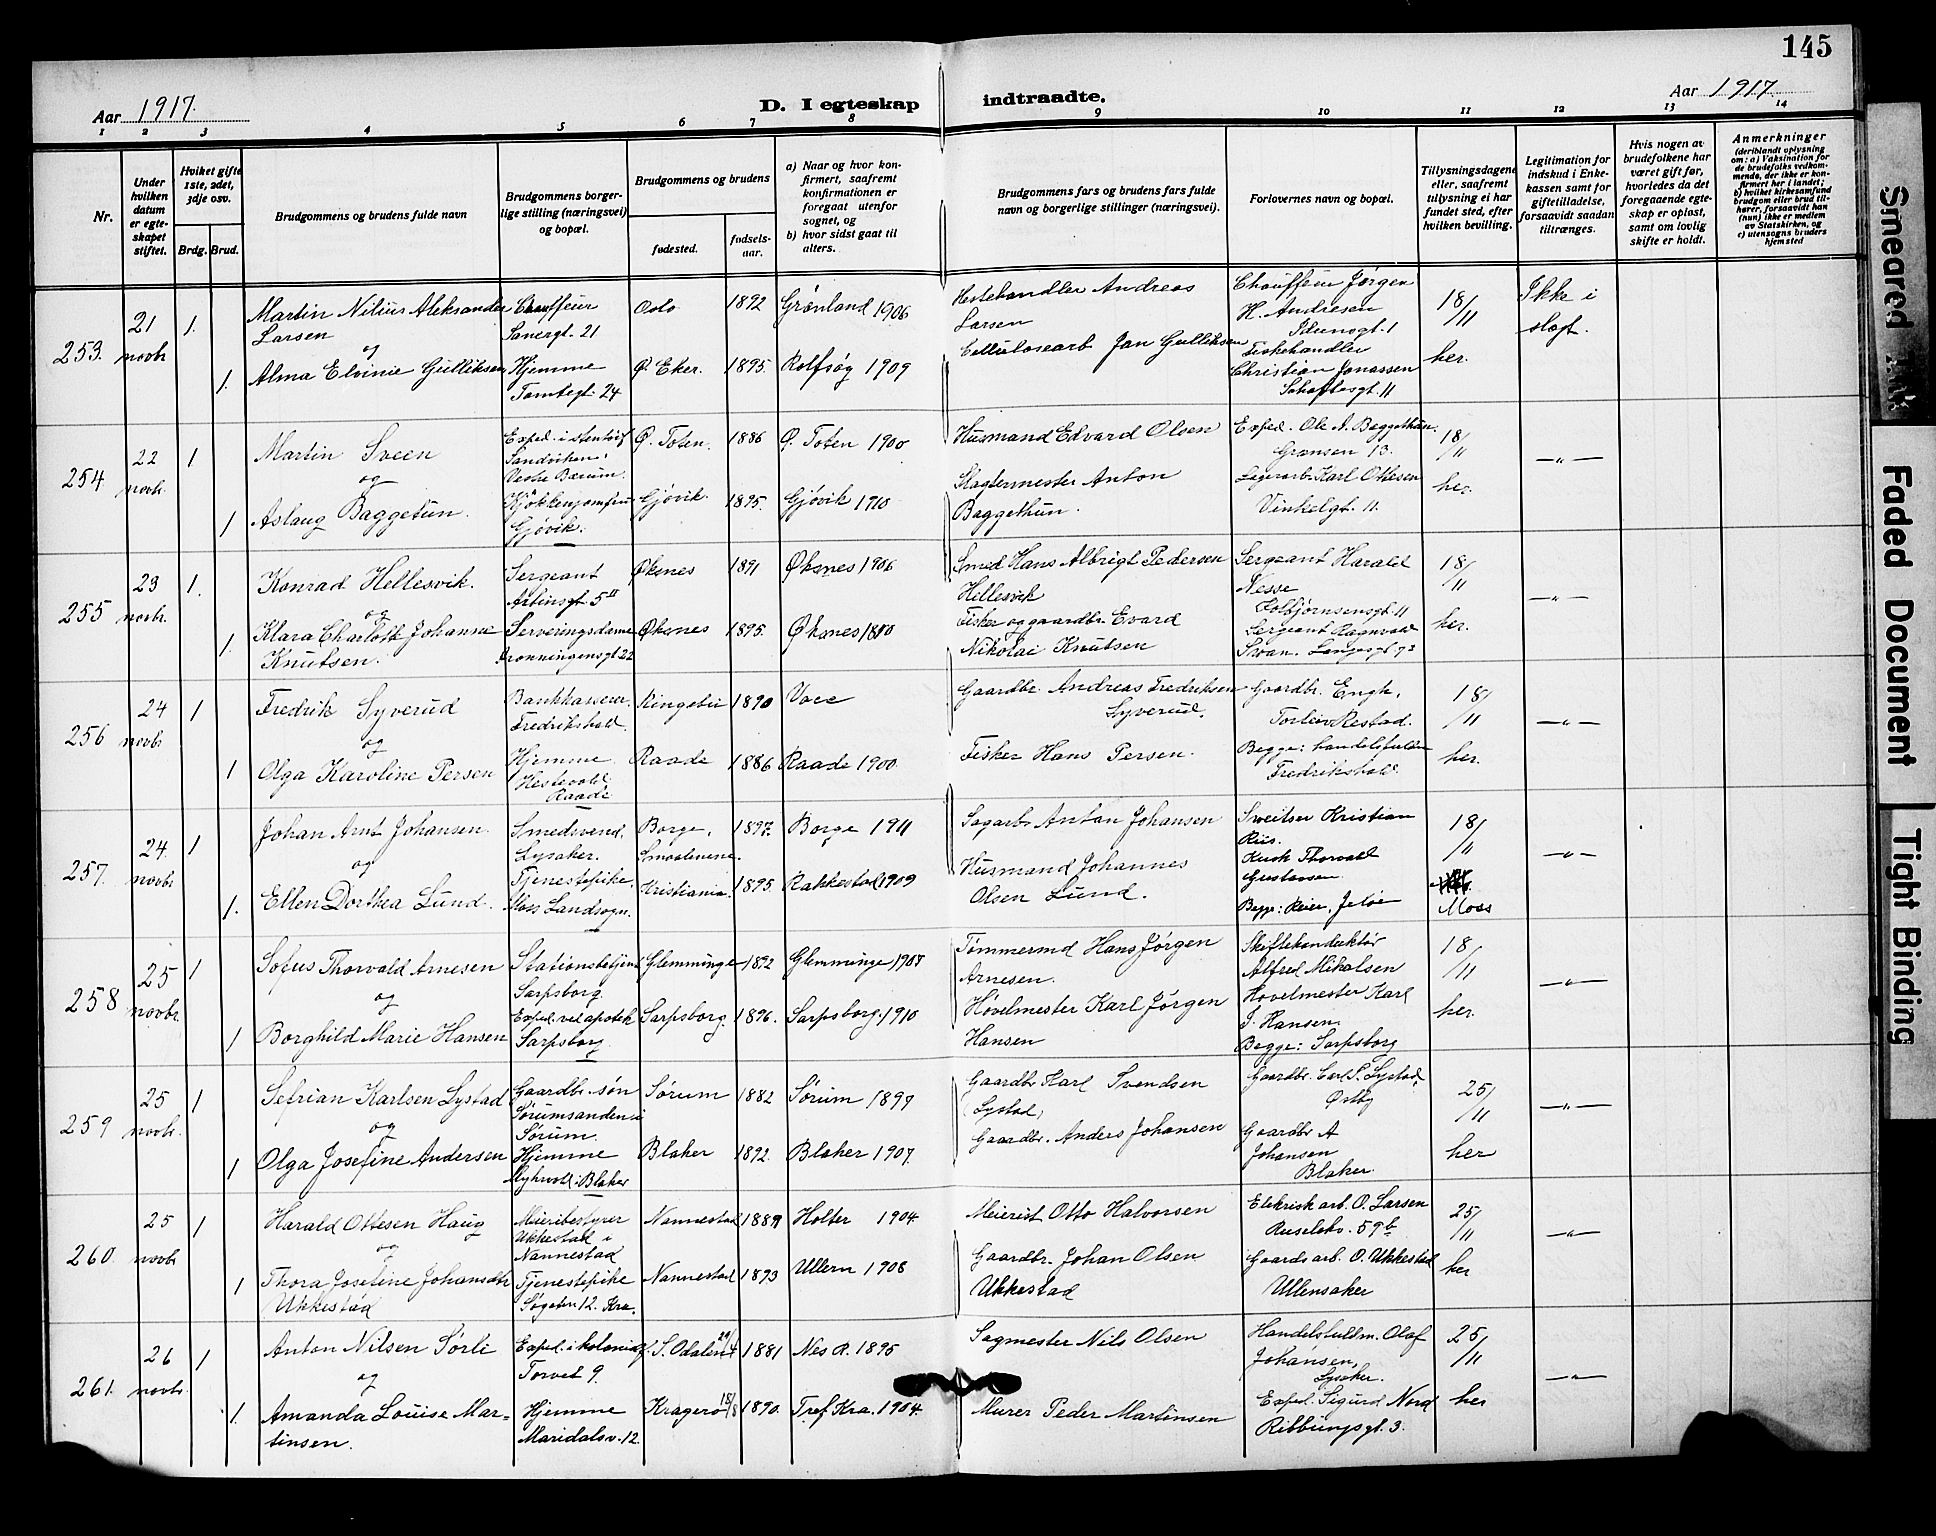 145
Aar 1917.
D. I egteskap
indtraadte.
Aar 1917.
1 2 3 4 5 6 7 8 9 10 11 12 13 14
Nr.
Under hvilken datum er egteskapet stiftet.
Hvilket gifte 1ste, 2det, 3dje osv.
Brdg. Brud.
Brudgommens og brudens fulde navn
Brudgommens borgerlige stilling (næringsvei) og bopæl.
Brudgommens og brudens
fødested.
fødselsaar.
a) Naar og hvor konfirmert, saafremt konfirmationen er foregaat utenfor sognet, og
b) hvor sidst gaat til alters.
Brudgommens fars og brudens fars fulde navn og borgerlige stillinger (næringsvei).
Forlovernes navn og bopæl.
Tillysningsdagene eller, saafremt tillysning ei har fundet sted, efter hvilken bevilling.
Legitimation for indskud i Enkekassen samt for giftetilladelse, forsaavidt saadan tiltrænges.
Hvis nogen av brudefolkene har været gift før, hvorledes da det foregaaende egteskap er opløst, samt om lovlig skifte er holdt.
Anmerkninger
(deriblandt oplysning om: a) Vaksination for de brudefolks vedkommende, der ikke er konfirmert her i landet; b) hvilket kirkesamfund brudgom eller brud tilhører, forsaavidt han (hun) ikke er medlem av Statskirken, og c) utensogns bruders hjemsted
253. 21 novbr. 1. Martin Nilius Aleksander Larsen
Chauffeur
Oslo 1892 Grønland 1906
Hestehandler Andreas Larsen
Chauffeur Jørgen H. Andresen
Idunsgt. 1
18/11 her.
Ikke i slegt.
og
1. Alma Elvinie Gulliksen
Hjemme
Tomtegt. 24
Ø. Eker. 1895 Rolfsøy 1909
Cellulosearb Jan Gulliksen
Fiskehandler Christian Jonassen
11
254 22 novbr. 1 Martin Sveen
Exped. i
Sandviken i Vestre Bærum.
Ø. Toten. 1886 Ø. Toten 1900
Husmand Edvard Olsen
Exped. Ole A. Baggethun.
Grænsen 13.
18/11 her.
—„—
og
1 Aslaug Baggetun.
Kjøkkenjomfru
Gjøvik.
Gjøvik. 1895. Gjøvik 1910
Slagtermester Anton Baggethun.
Lagerarb. Karl Ottesen
Vinkelgt. 11.
255 23 novbr. 1. Konrad Hellesvik.
Sergeant
Arbinsgt. 5 II
Øksnes 1891 Øksnes 1906
Smed Hans Albrigt Pedersen Hillesvik
Sergeant Harald Nesse
18/11 her.
—„—
og
1. Klara Charlotte Johanne Knutsen.
Serveringsdame
Dronningensgt 22
Øksnes 1895. Øksnes 1810
Fisker og gaardbr. Evard Nikolai Knutsen
Sergeant Ragnvald Svan. Langesgt
256 24 novbr 1 Fredrik Syverud
Bankkasserer
Fredrikshald.
Ringebu 1890
Gaardbr. Andreas Fredriksen Syverud.
Gaardbr. Engh.
Torleiv Restad.
18/11 her.
—„—
og
1 Olga Karoline Persen
Hjemme
Raade
Raade 1886 Raade 1900
Fisker Hans Persen.
Begge:
Fredrikshald.
257. 24. novbr 1 Johan Arnt Johansen.
Smedsvend.
Lysaker.
Borge, Smaalenene. 1897. Borge 1911
Sagarbr Anton Johansen
Sveitser Kristian Riis.
18/11
Moss
—„—
og
1. Ellen Dorthea Lund.
Tjenestepike.
Moss Landsogn.
Kristiania. 1895 Rakkestad 1909
Husmand Johannes Olsen Lund.
Kusk Thorvald Gustavsen.
Begge: Reier, Jeløe
258 25 novbr. 1 Sofus Thorvald Arnesen
Stationsbetjent
Sarpsborg.
Glemminge 1892 Glemminge 1907
Tømmermd Hans Jørgen Arnesen.
Skiftekonduktør Alfred Mikalsen
18/11 her.
—„—
og
1 Borghild Marie Hansen
Exped. ved apotek
Sarpsborg
Sarpsborg. 1896. Sarpsborg. 1910
Høvelmester Karl Jørgen Hansen
Høvelmester Karl J. Hansen.
Begge: Sarpsborg
259 25 novbr. 1 Sefrian Karlsen Lystad
Gaardbr. søn
Sørumsanden i Sørum.
Sørum 1882 Sørum 1897
Gaardbr Karl Svendsen (Lystad)
Gaardbr. Carl S. Lystad,
Østby
25/11 her
—„—
og
1 Olga Josefine Andersen
Hjemme
i Blaker
Blaker 1892. Blaker 1907.
Gaardbr. Anders Johansen
Gaardbr A Johansen
Blaker.
260. 25 novbr 1 Harald Ottesen Haug
Meieribestyrer
Ukkestad i Nannestad
Nannestad 1889 Holter 1904.
Meierist Otto Halvorsen
Elekrisk arb. O. Larsen
Ruseløkv. 59 b
25/11 her
—„—
og
1 Thora Josefine Johansdtr Ukkestad
Tjenestepike
Søgaten 12. Kra.
Nannestad 1893 Ullern 1908
Gaardbr. Johan Olsen Ukkestad
Gaards arb. O. Ukkestad
Ullensaker
261. 26 novbr. 1 Anton Nilsen Sørli
Exped. i kolonialf.
Torvet 9.
S. Odalen 1881 Nes R. 1895
Sagmester Nils Olsen
Handelsfuldm. Olaf Johansen,
Lysaker.
25/11 her
—„—
og
1. Amanda Louise Martinsen.
Hjemme
Maridalsv. 12.
Kragerø 18/8 1890. Tref. Kra. 1904.
Murer Peder Martinsen
Exped. Sigurd Nord
Ribbungsgt. 3.
Smeared Ink
Faded Document
Tight Binding